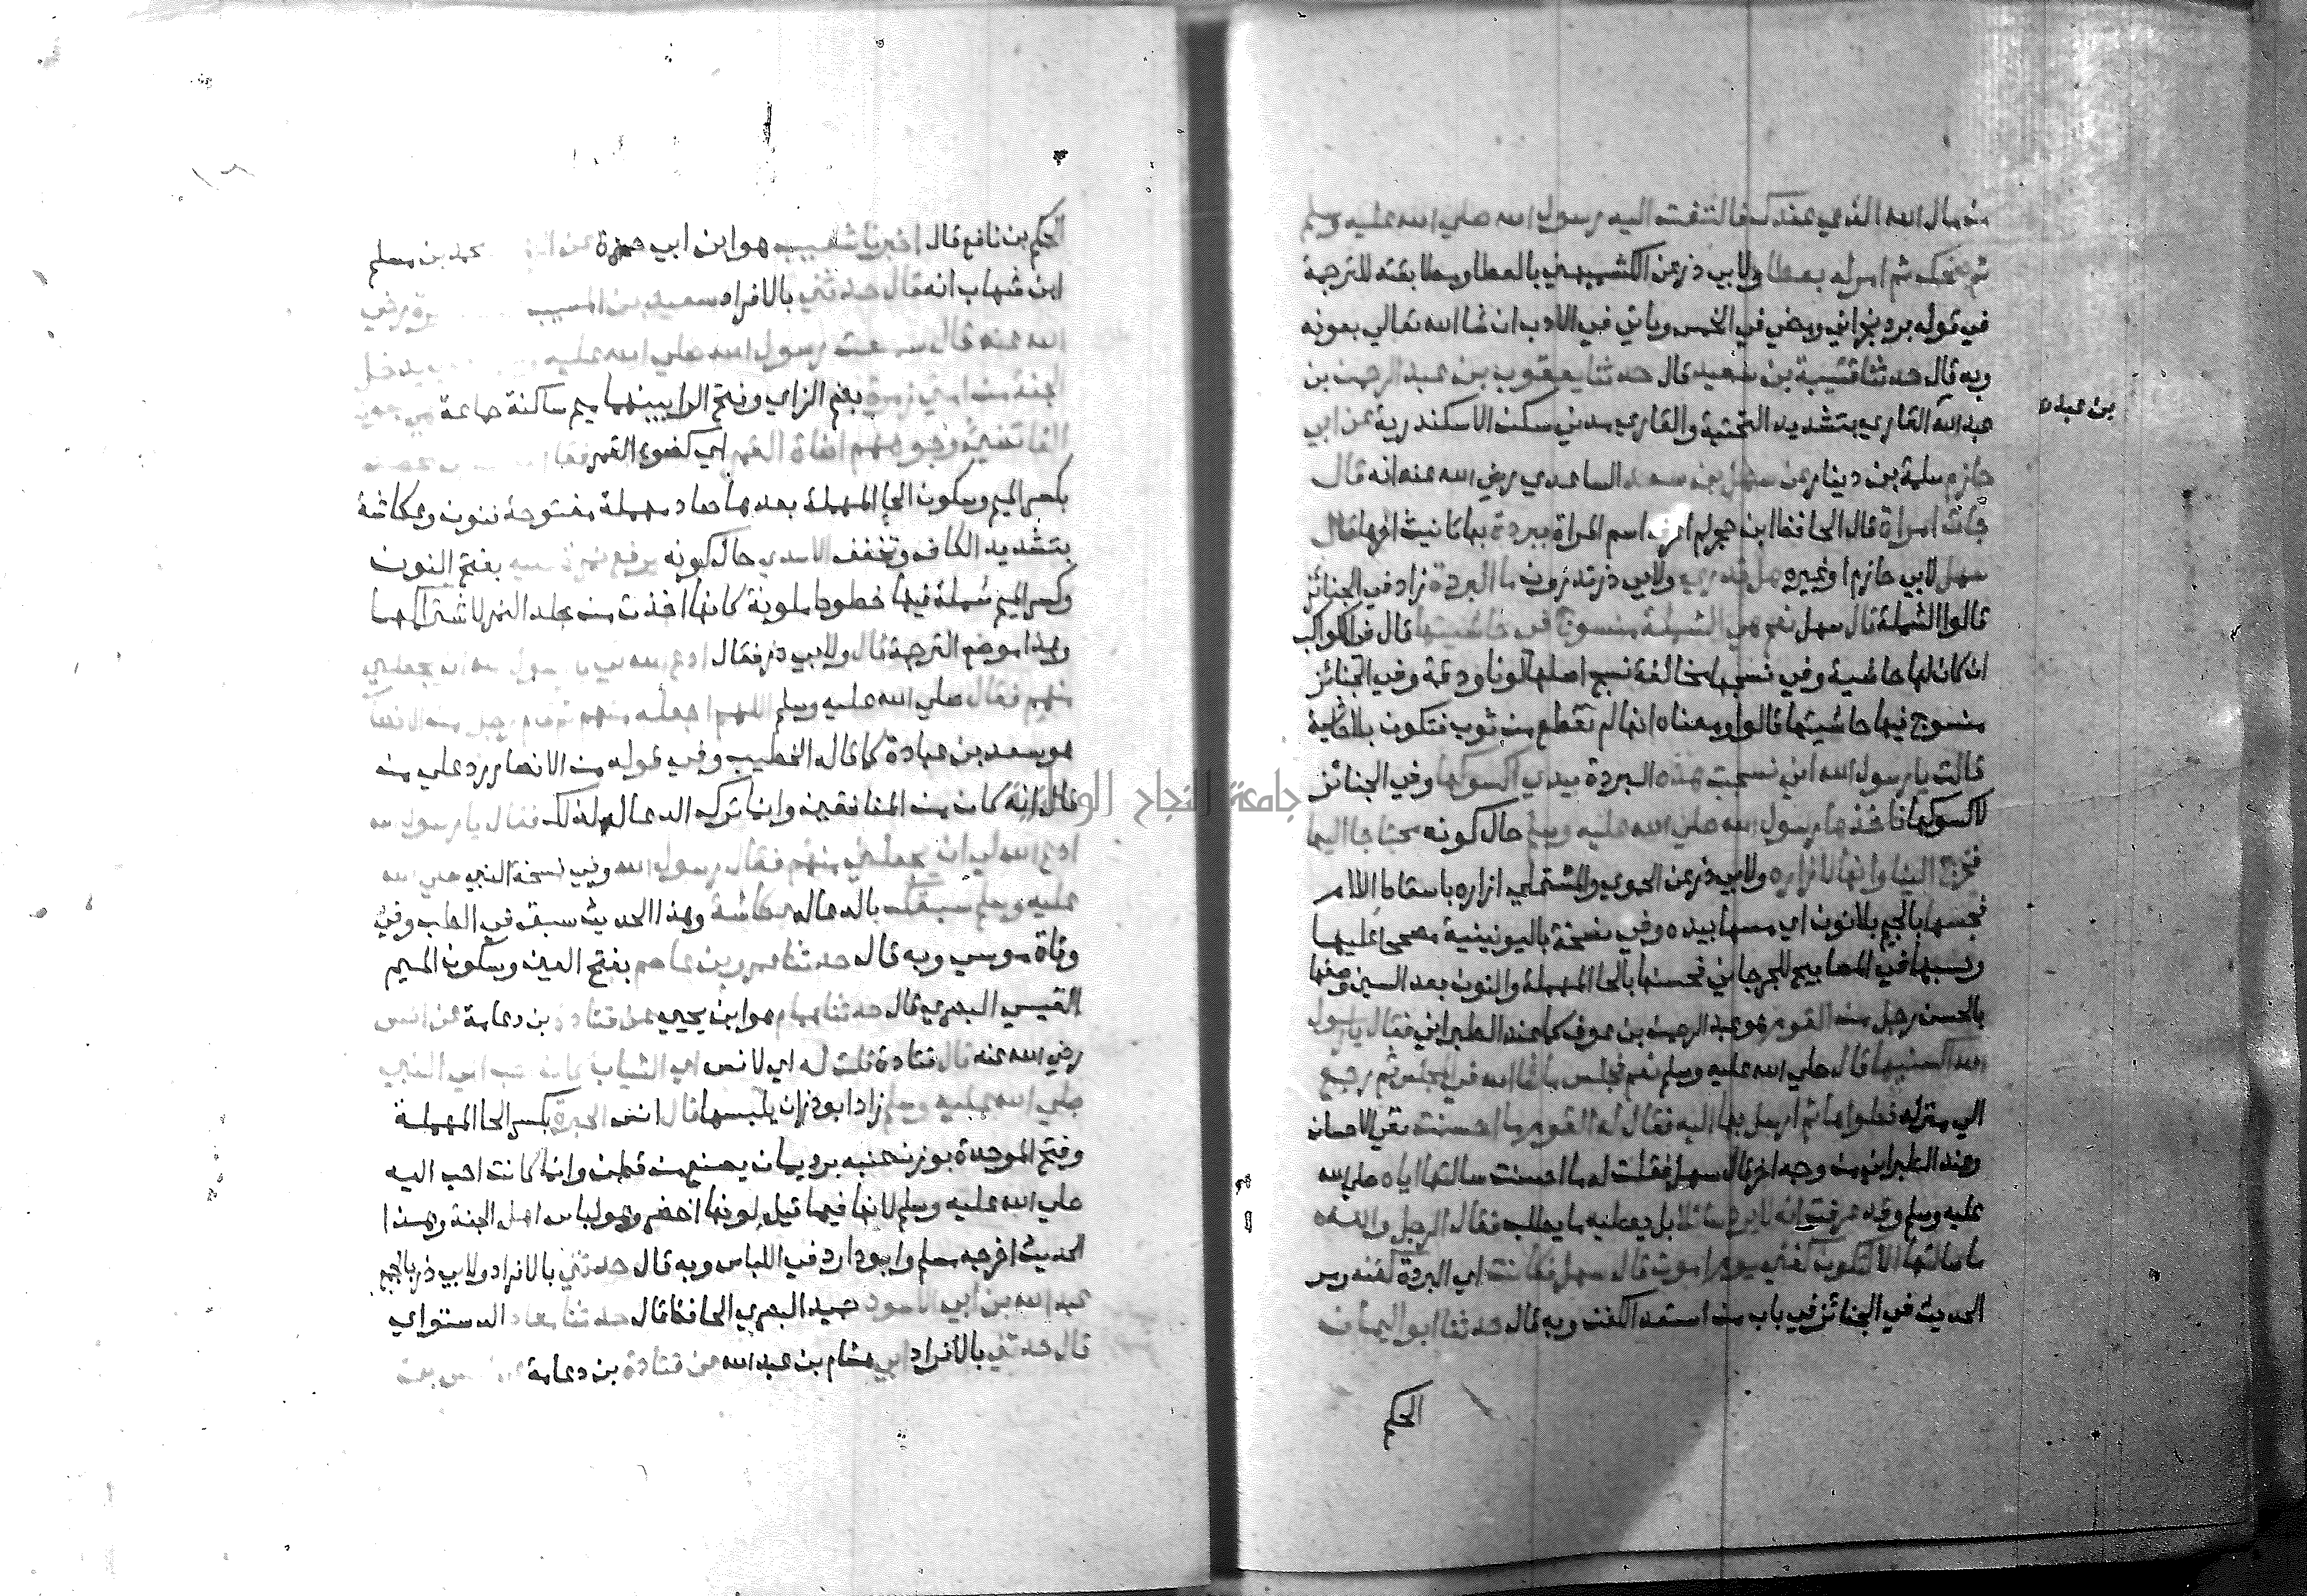 من مال الله الذي عندك فالتفت اليه رسول الله صلي الله عليه وسلم
ثم ضحك ثم امر له بعطا ولابي ذر عن الكشميهني بالعطا ومطابقته للترجمة
في قوله برد نجراني ومضي في الخمس وياتي في الادب ان شا الله تعالي بعونه
وبه قال حدثنا قتيبة بن سعيد قال حدثنا يعقوب بن عبد الرحمن بن
عبد الله القاري بتشديد التحتية والقاري مدني سكن الاسكندرية عن ابي
بن عبد
حازم سلمة بن دينار عن سهل بن سعد الساعدي رضي الله عنه انه قال
جات امراة قال الحافظ ابن حجر لم اعرف اسم المراة ببردة بها تانيث اخرها قال
سهل لابي حازم او غيره هل تدري ولابي ذر تدرون ما البردة زاد في الجنائز
قالوا الشملة قال سهل نعم هي الشملة منسوج في حاشيتها قال في الكواكب
ان كان لها حاشية وفي نسجها مخالفة لنسج اصلها لونا ودقة وفي الجنائز
منسوج فيها حاشيتها قالوا ومعناه انها لم تقطع من ثوب فتكون بلا حاشية
قالت يا رسول الله اني نسجت هذه البردة بيدي اكسوكها وفي الجنائز
لاكسوكها فاخذها رسول الله صلي الله عليه وسلم حال كونه محتاجا اليها
فخرج الينا وانها لازاره ولابي ذر عن الحموي والمستملي ازاره باسقاط اللام
فجسها بالجيم بلا نون اي مسها بيده وفي نسخة باليونينية مصحح عليها
ونسبها في المصابيح للجرجاني فحسنها بالحا المهملة والنون بعد السين وصفها
بالحسن رجل من القوم هو عبد الرحمن بن عوف كما عند الطبراني فقال يا رسول
الله اكسنيها قال صلي الله عليه وسلم نعم فجلس ما شا الله في المجلس ثم رجع
الي منزله فطواها ثم ارسل بها اليه فقال له القوم ما احسنت نفي الاحسان
وعند الطبراني من وجه اخر قال سهل فقلت له ما احسنت سالتها اياه صلي الله
عليه وسلم وقد عرفت انه لا يرد سائلا بل يعطيه ما يطلب فقال الرجل والله
ما سالتها الا لتكون كفني يوم اموت قال سهل فكانت اي البردة كفنه ومر
الحديث في الجنائز في باب من استعد الكفن وبه قال حدثنا ابو اليمان
الحكم
الحكم بن نافع قال اخبرنا شعيب هو ابن ابي حمزة عن محمد بن مسلم
ابن شهاب انه قال حدثني بالافراد سعيد بن المسيب رضي
الله عنه قال سمعت رسول الله صلي الله عليه يدخل
الجنة من امتي زمرة بضم الزاي وفتح الرا بينهما ميم ساكنة جماعة هي
الفا تضي وجوههم اضاة القمر اي كضوء القمر فقام
بكسر الميم وسكون الحا المهملة بعدها صاد مهملة مفتوحة فنون وعكاشة
بتشديد الكاف وتخفف الاسدي حال كونه يرفع نمرة عليه بفتح النون
وكسر الميم شملة فيها خطوط ملونة كانها اخذت من جلد النمر لاشتراكهما
وهذا موضع الترجمة قال ولابي ذر فقال ادع الله لي يا رسول الله ان يجعلني
منهم فقال صلي الله عليه وسلم اللهم اجعله منهم ثم قام رجل من الانصار
هو سعد بن عبادة كما قاله الخطيب وفي قوله من الانصار رد علي من
قال انه كان من المنافقين وانما ترك الدعا له لذلك فقال يا رسول الله
ادع الله لي ان يجعلني منهم فقال رسول الله وفي نسخة النبي صلي الله
عليه وسلم سبقك بالدعا له عكاشة وهذا الحديث سبق في الطب وفي
وفاة موسي وبه قال حدثنا عمرو بن عاصم بفتح العين وسكون الميم
القيسي البصري قال حدثنا همام هو ابن يحيي عن قتادة بن دعامة عن انس
رضي الله عنه قال قتادة قلت له اي لانس اي الثياب كان احب الي النبي
صلي الله عليه وسلم زاد ابو ذر ان يلبسها قال انس الحبرة بكسر الحا المهملة
وفتح الموحدة بوزن عنبة برد يمان يصنع من قطن وانما كانت احب اليه
صلي الله عليه وسلم لانها فيما قيل لونها اخضر وهو لباس اهل الجنة وهذا
الحديث اخرجه مسلم وابو داود في اللباس وبه قال حدثني بالافراد ولابي ذر بالجمع
عبد الله بن ابي الاسود حميد البصري الحافظ قال حدثنا معاذ الدستواي
قال حدثني بالافراد ابي هشام بن عبد الله عن قتادة بن دعامة
جامعة النجاح الوطنية